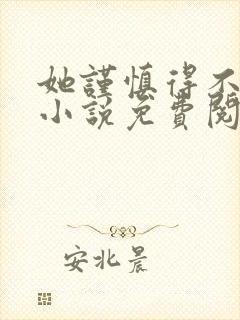 她謹慎得不
小說免費閱
安北晨